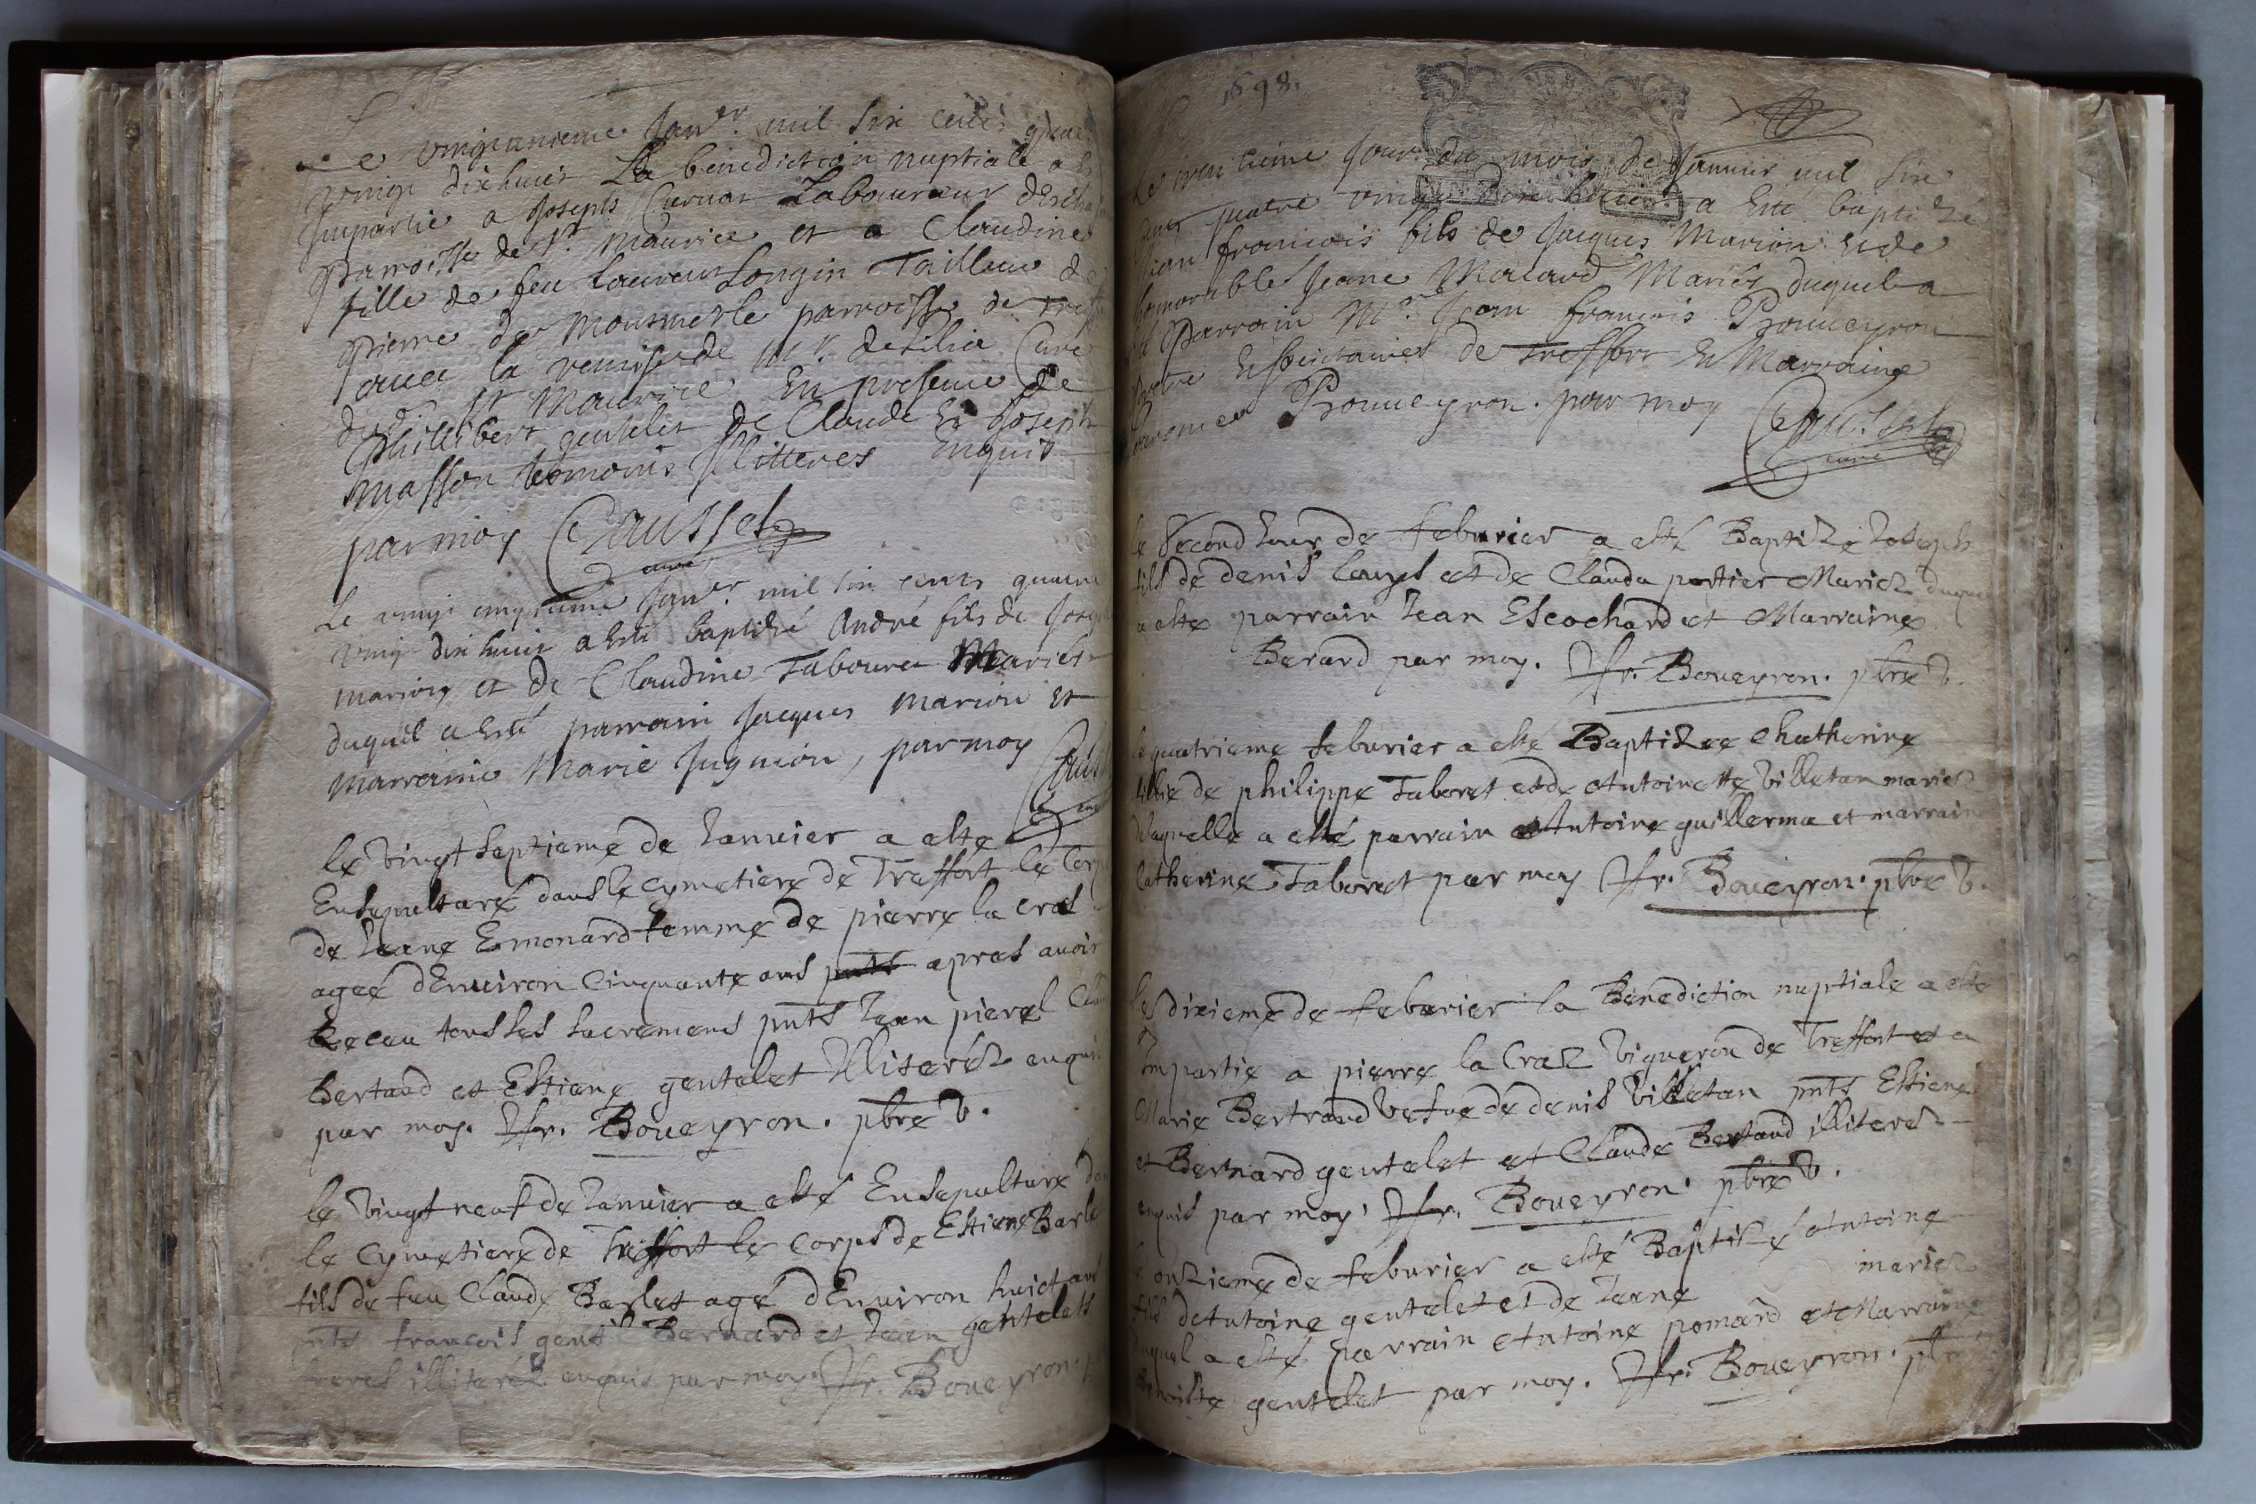 Le vingtunieme Janer mil six cents quatre
vingt dixhuict La bénédiction nuptiale a
impartie a Joseph Laboureur
parroisse de St Maurice et a Claudine
fille de feu Laurent Longin Tailleur de
pierre de Monmerle parroisse de
avec la remise de Mr Curé
dudt St Maurice En presence de
Phillibert gentelet de Claude Et Joseph
Masson temoins Illitteres Enquis
par moy Caussel
curé
Le vingt cinquieme Janer mil six cents quatre
vingt dix huict a esté baptizé André fils de Joseph
marion et de Claudine Tabouret Mariés
duquel a esté parrain Jacques marion et
marraine Marie Jugnion, par moy
le vingt septieme de Janvier a esté
Ensepulturé dans le cymetiere de Treffort le Corps
de Jeane Emonard femme de pierre la cras
agée dEnuiron Cinquante ans pnts apres auoir
Receu tous ses sacremens pnts Jean pierre
Bertaud et Estiene gentelet Illiteréz enquis
par moy. Jfr. Boueyron. pbre v.
le vingt neuf de Janvier a esté Ensepulturé dans
le cymetiere de Treffort le Corps de Estiene Barlet
fils de feu Claude Barlet agé dEnuiron huict ans
pnts francois gent Bernard et Jean gentelets
freres illiteréz enquis par moy. Jfr. Boueyron.
1698.
Le trentieme Jour du mois de Janvier mil six
cents quatre vingt dix huict a Esté baptizé
Jean francois fils de Jacques Marion et de
honorable Jeane Macard Mariés duquel a
esté Parrain Mre Jean francois Boueyron
de Treffort Et Marraine
Boueyron. par moy Caussel
curé
le second Jour de feburier a esté Baptizé Joseph
fils de denis Louys et de Clauda portier Mariez duquel
a esté parrain Jean Escochard et Marraine
Berard par moy. Jfr. Boueyron. pbre v.
le quatrieme feburier a esté Baptizee Chatherine
fillie de philippe Taboret et de Antoinette Villetan mariez
de laquelle a esté parrain Antoine guillerma et marraine
Catherine Taboret par moy Jfr. Boueyron. pbre v.
le dixieme de feburier la Benediction nuptiale a esté
Impartie a pierre la Craz vigneron de Treffort et a
Marie Bertrand vefue de denis Villetan pnts Estiene
et Bernard gentelet et Claude Bertaud illiterez
enquis par moy. Jfr. Boueyron. pbre v.
le onzieme de feburier a esté Baptisé Antoine
fils de Antoine gentelet et de Jeane mariez
duquel a esté parrain Antoine pomard et Marraine
gentelet par moy. Jfr. Boueyron. pbre